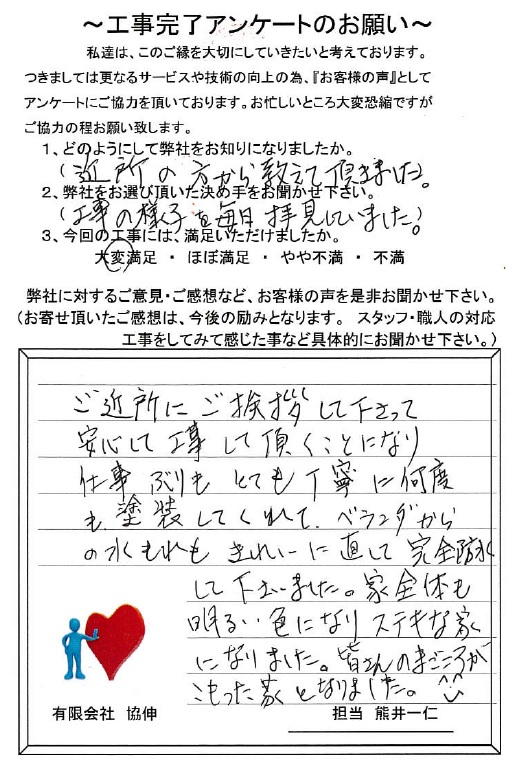 ～工事完了アンケートのお願い～
私達は、このご縁を大切にしていきたいと考えております。
つきましては更なるサービスや技術の向上の為、『お客様の声』として
アンケートにご協力を頂いております。お忙しいところ大変恐縮ですが
ご協力の程お願い致します。
1、どのようにして弊社をお知りになりましたか。
(近所の方から教えて頂きました。
2、弊社をお選び頂いた決め手をお聞かせ下さい。
(工事の様子を毎日拝見していました。)
3、今回の工事には、満足いただけましたか。
大変満足 ・ ほぼ満足 ・ やや不満 ・ 不満
弊社に対するご意見・ご感想など、お客様の声を是非お聞かせ下さい。
(お寄せ頂いたご感想は、今後の励みとなります。 スタッフ・職人の対応
工事をしてみて感じた事など具体的にお聞かせ下さい。)
ご近所にご挨拶して下さって
安心して工事して頂くことになり
仕事ぶりもとても丁寧に何度
も塗装してくれて、ベランダから
の水もれもきれいーに直して完全防水
して下さいました。家全体も
明るい色になりステキな家
になりました。皆さんのまごころが
こもった家となりました。^^
有限会社 協伸
担当 熊井一仁